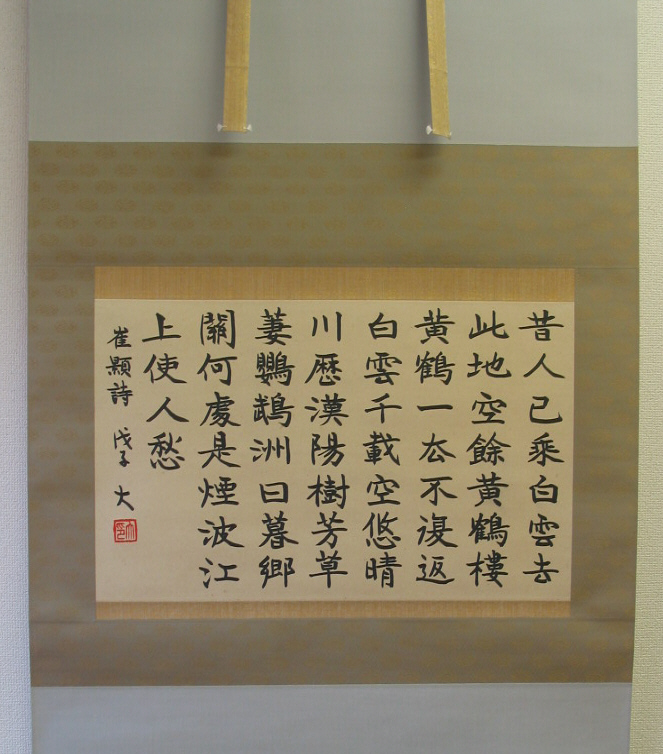 昔人已乘白雲去
此地空餘黄鶴樓
黄鶴一厺不復返
白雲千載空悠晴
川歴漢陽樹芳草
萋鸚鵡洲日暮郷
關何處是煙波江
上使人愁
崔顥詩 戊子 大